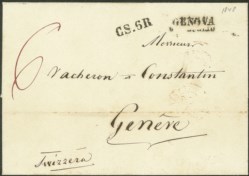 1848
C.S.6R GENOVA
Monsieur
6 Vacheron & Constantin
Genève
Svizzera